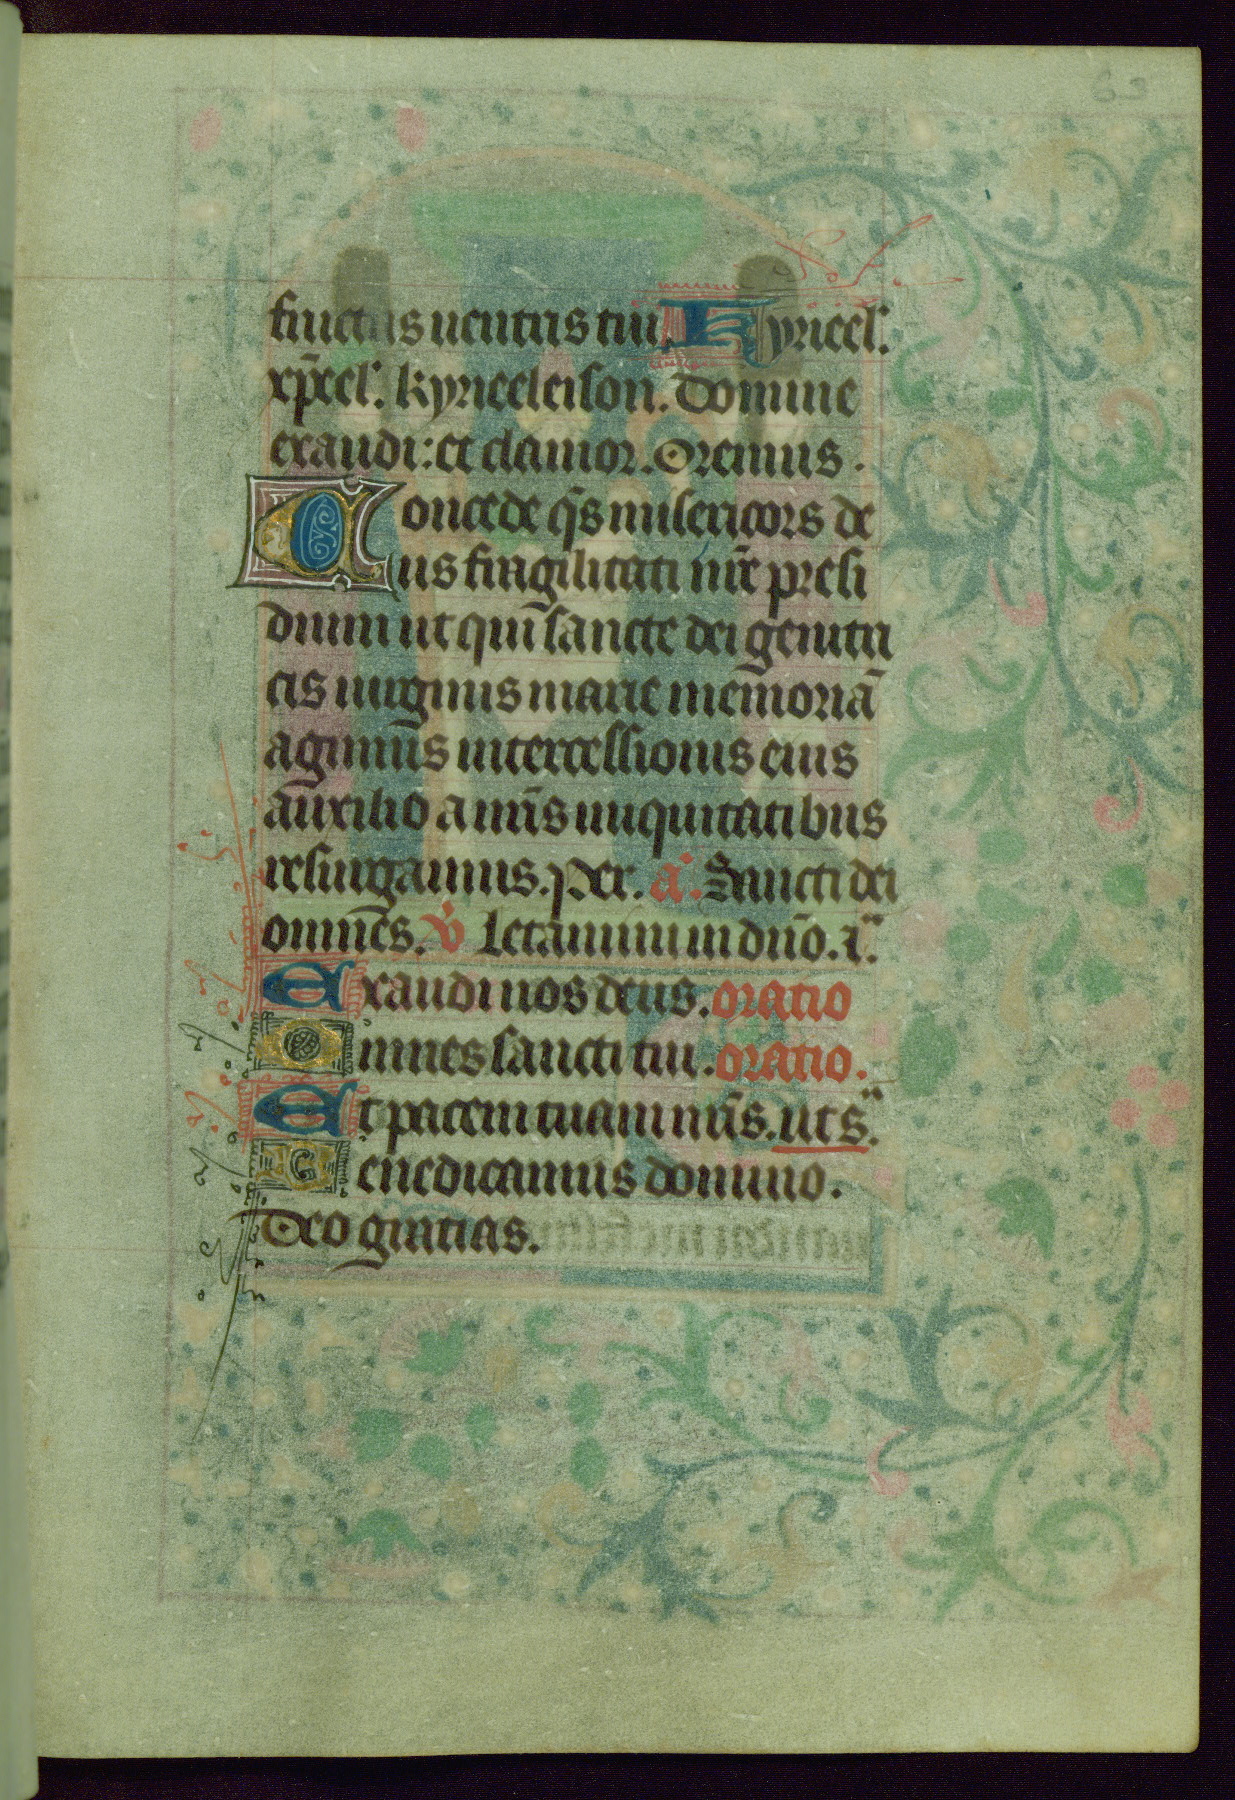 63
fructus uentris tui. Kyrieel'.
xp̄eel'. kyrieeleison. Domine
exaudi: et clamor. Oremus.
Concede q̄s misericors de
us fragilitati nr̄e presi
dium ut qui sancte dei genitri
cis uirginis marie memoriā
agimus intercessionis eius
auxilio a nr̄is iniquitatibus
resurgamus. Per. a'. Sancti dei
omnes. v̇ Letamini in dn̄o.
Exaudi nos deus. oratio
Omnes sancti tui. oratio.
Et pacem tuam nr̄is. ut s.
Benedicamus domino.
Deo gratias.